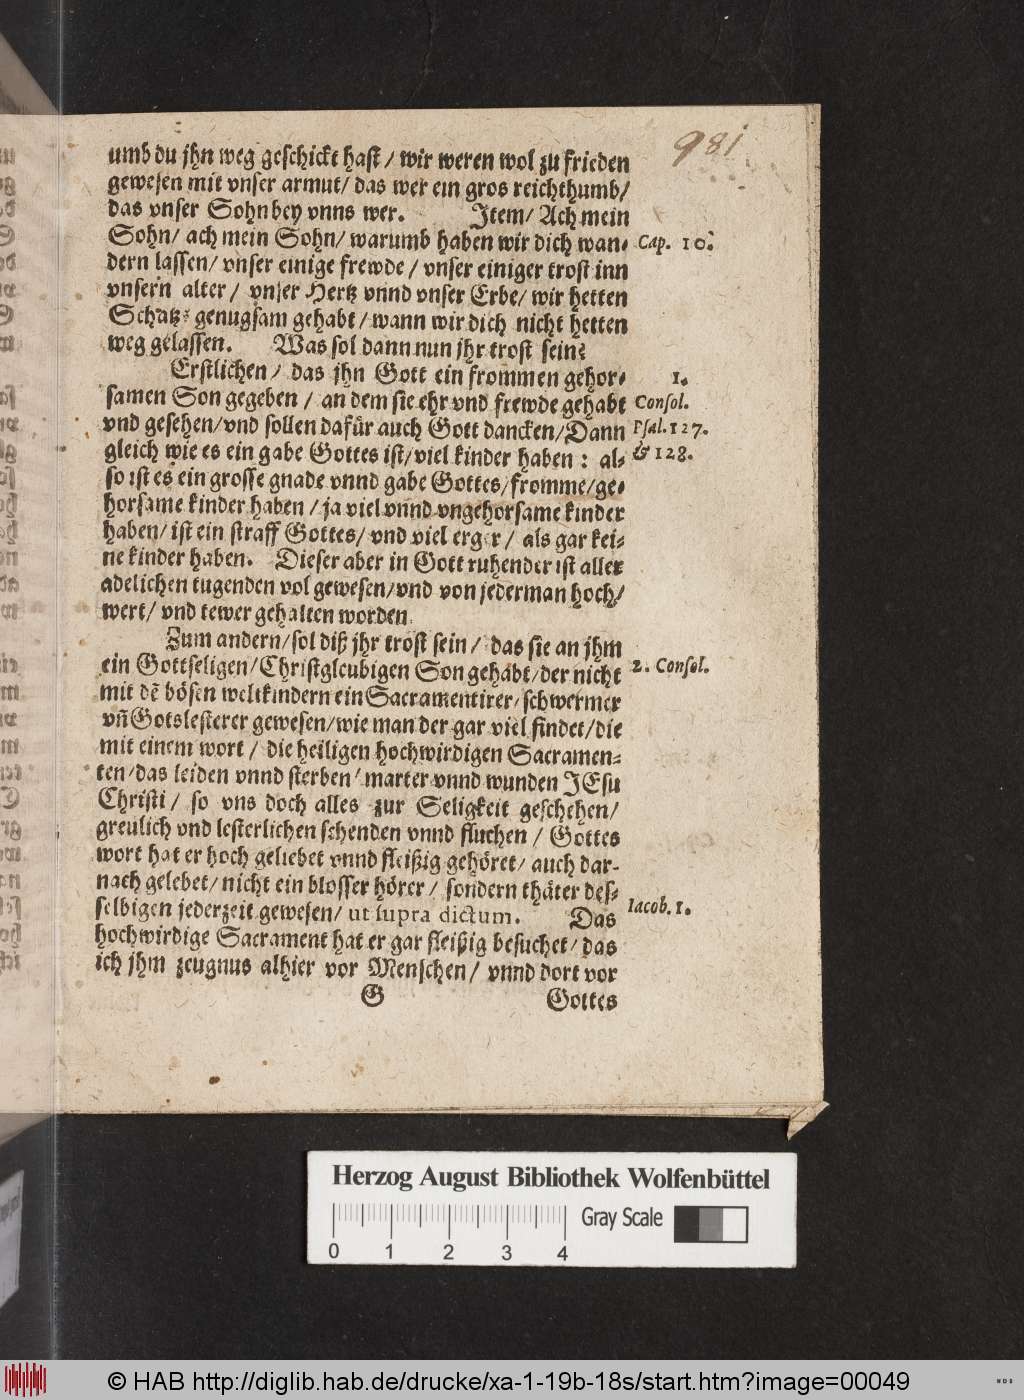 981
umb du jhn weg geschickt hast / wir weren wol zu frieden
gewesen mit vnser armut / das wer ein gros reichthumb /
das vnser Sohn bey vnns wer. Item / Ach mein
Sohn / ach mein Sohn / warumb haben wir dich wan- Cap. 10.
dern lassen / vnser einige frewde / vnser einiger trost inn
vnsern alter / vnser Hertz vnnd vnser Erbe / wir hetten
Schatz genugsam gehabt / wann wir dich nicht hetten
weg gelassen. Was sol dann nun jhr trost sein?
Erstlichen / das jhn Gott ein frommen gehor- 1.
samen Son gegeben / an dem sie ehr vnd frewde gehabt Consol.
vnd gesehen / vnd sollen dafür auch Gott dancken / Dann Psal. 127.
gleich wie es ein gabe Gottes ist / viel kinder haben : al- & 128.
so ist es ein grosse gnade vnnd gabe Gottes / fromme / ge-
horsame kinder haben / ja viel vnnd vngehorsame kinder
haben / ist ein straff Gottes / vnd viel erger / als gar kei-
ne kinder haben. Dieser aber in Gott ruhender ist aller
adelichen tugenden vol gewesen / vnd von jederman hoch /
wert / vnd tewer gehalten worden.
Zum andern / sol diß jhr trost sein / das sie an jhm
ein Gottseligen / Christgleubigen Son gehabt / der nicht 2. Consol.
mit dē bösen weltkindern ein Sacramentirer / schwermer
vñ Gotslesterer gewesen / wie man der gar viel findet / die
mit einem wort / die heiligen hochwirdigen Sacramen-
ten / das leiden vnnd sterben / marter vnnd wunden JEsu
Christi / so vns doch alles zur Seligkeit geschehen /
greulich vnd lesterlichen schenden vnnd fluchen / Gottes
wort hat er hoch geliebet vnnd fleißig gehöret / auch dar-
nach gelebet / nicht ein blosser hörer / sondern thäter des-
selbigen jederzeit gewesen / ut supra dictum. Das Iacob. 1.
hochwirdige Sacrament hat er gar fleißig besuchet / das
ich jhm zeugnus alhier vor Menschen / vnnd dort vor
G Gottes
Herzog August Bibliothek Wolfenbüttel
Gray Scale
0 1 2 3 4
© HAB http://diglib.hab.de/drucke/xa-1-19b-18s/start.htm?image=00049